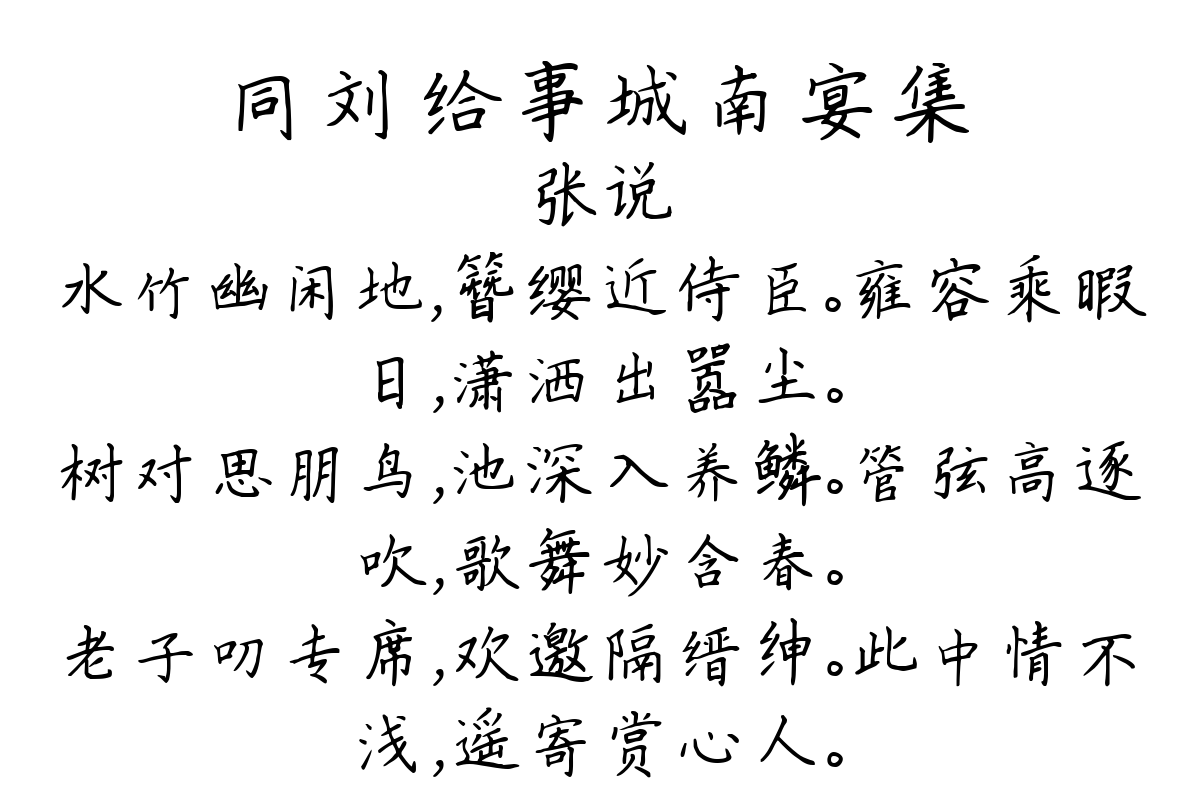 同刘给事城南宴集
张说
水竹幽闲地,簪缨近侍臣。雍容乘暇
日,潇洒出嚣尘。
树对思朋鸟,池深入养鳞。管弦高逐
吹,歌舞妙含春。
老子叨专席,欢邀隔缙绅。此中情不
浅,遥寄赏心人。